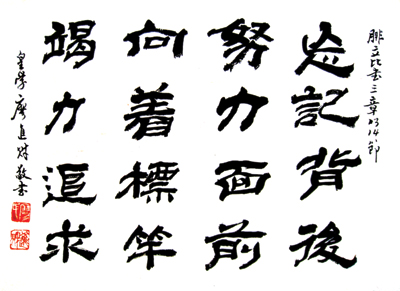 腓立比書三章13.14節
忘記背後
努力面前
向着標竿
竭力追求
皇堂 廖進財敬書